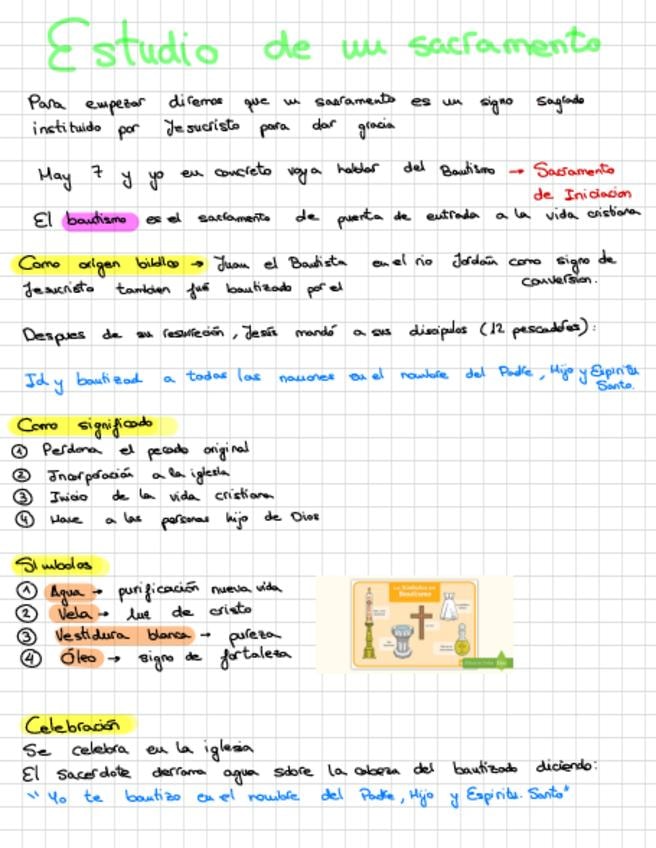 Estudio de un sacramento
Para empezar diremos que un sacramento es un signo sagrado
instituido por Jesucristo para dar gracia
May 7 y yo en concreto voy a hablar del Bautismo → Sacramento
de Iniciacion
El bautismo es el sacramento de puerta de entrada a la vida cristiana
Como origen biblico → Juan el Bautista en el rio Jordán como signo de
conversion.
Jesucristo tambien fué bautizado por el
Despues de su resurreción, Jesús mandó a sus discipulos (12 pescadores):
Id y bautizad a todas las naciones en el nombre del Padre, Hijo y Espiritu
Santo.
Como significado
① Perdona el pecado original
② Incorporación a la iglesia
③ Inicio de la vida cristiana
④ Hace a las personas hijo de Dios
Simbolos
① Agua → purificación nueva vida
② Vela → luz de cristo
③ Vestidura blanca → pureza
④ Óleo → signo de fortaleza
Los Símbolos del
Bautismo
Celebración
Se celebra en la iglesia
El sacerdote derrama agua sobre la cabeza del bautizado diciendo:
"Yo te bautizo en el nombre del Padre, Hijo y Espiritu Santo"